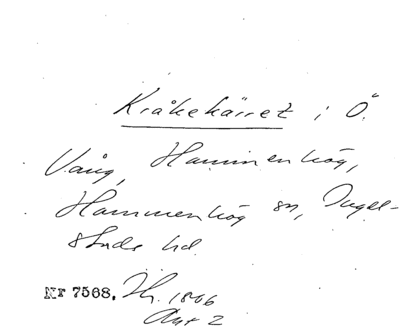 Kråkekärret i Ö.
Vång, Hammenhög,
Hammenhög sn, Ingel-
stads hd.
Nr 7568. Th. 1806
Akt 2